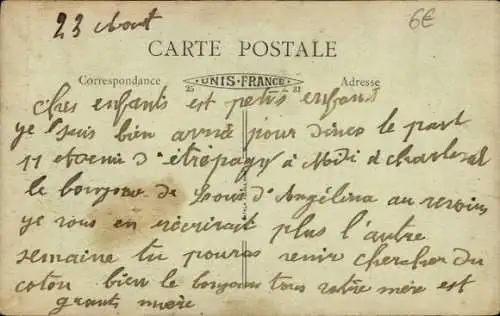 23 Aout
6€
CARTE POSTALE
Correspondance
UNIS-FRANCE
25 31
Adresse
Ches enfants est petis enfant
je suis bien arrivé pour dines le part
11 d'étrépagy à Midi
le bonjour de d'Angélina au revoire
je vous en récrirait plus l'autre
semaine tu pouras venir chercher du
coton bien le bonjour tous votre mère est
grants mère